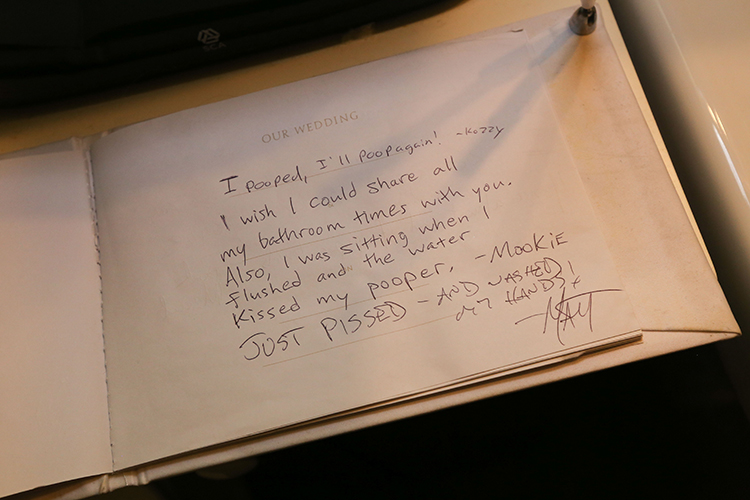 OUR WEDDING
I pooped, I'll poop again! -Kozzy
I wish I could share all
my bathroom times with you.
Also, I was sitting when I
flushed and the water
kissed my pooper. -MOOKIE
JUST PISSED - AND WASHED
MY HANDS!
-MAT